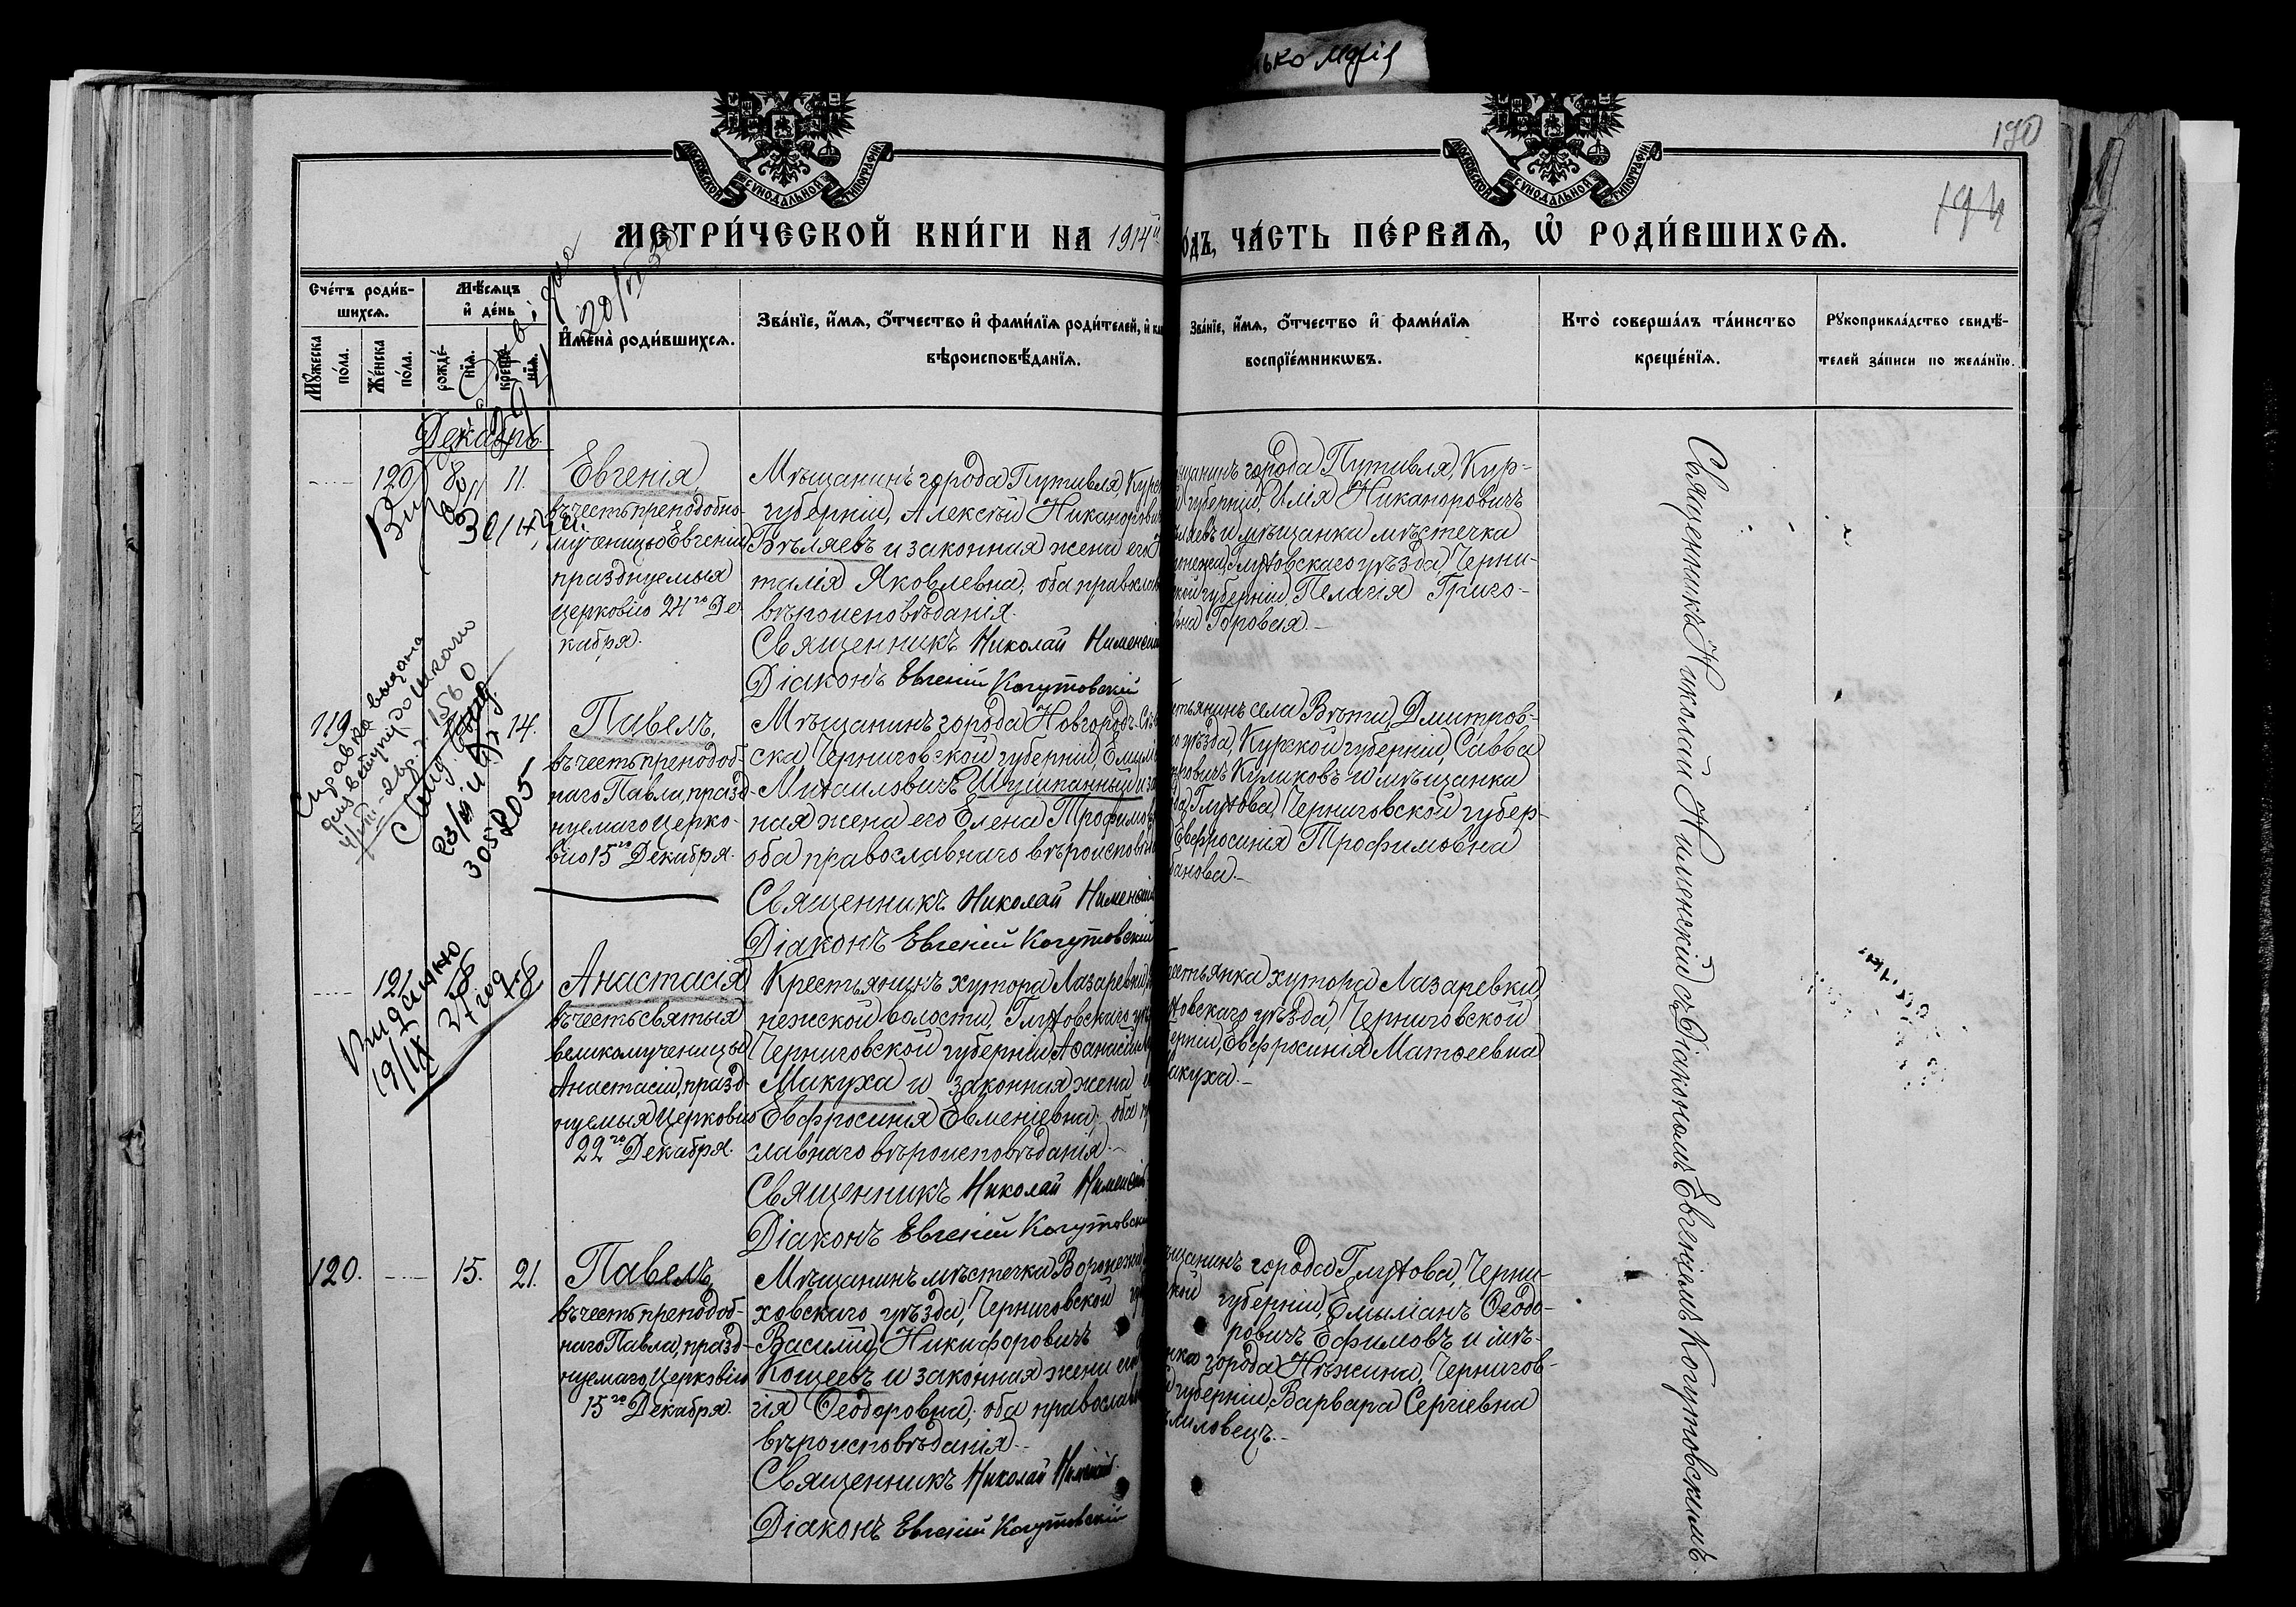 190
194
МОСКОВСКОЙ СѴНОДАЛЬНОЙ ТИПОГРАФІИ
МОСКОВСКОЙ СѴНОДАЛЬНОЙ ТИПОГРАФІИ
МЕТРИ́ЧЕСКОЙ КНИ́ГИ НА 1914й
О́ДЪ, ЧА́СТЬ ПЕ́РВАѦ, Ѡ҆ РОДИ́ВШИХСѦ.
Сче́тъ роди́в-
шихсѧ.
Мꙋ́жеска по́ла.
Же́нска по́ла.
Мѣ́сѧцъ
и҆ де́нь
рожде́-
нїѧ.
креще́-
нїѧ.
И҆мена̀ роди́вшихсѧ.
Зва́нїе, и҆́мѧ, ѻ҆́тчество и҆ фами́лїѧ роди́телей, и҆
вѣроисповѣ́данїѧ.
Зва́нїе, и҆́мѧ, ѻ҆́тчество и҆ фами́лїѧ
воспрїе́мникѡвъ.
Кто̀ соверша́лъ та́инство
креще́нїѧ.
Рꙋкоприкла́дство свидѣ́-
телей за́писи по жела́нїю.
Декабрь.
120 8 11.
Евгенія,
въ честь преподобно-
мученицы Евгеніи,
празднуемыя
церковію 24го Де-
кабря.
Мѣщанинъ города Путивля, Курс
губерніи, Алексѣй Никанорович
Бѣляевъ и законная жена его
талія Яковлевна, оба православ
вѣроисповѣданія.
Священникъ Николай Нименскій
Діаконъ Евгеній Когутовскій
щанинъ города Путивля, Кур-
губерніи, Илія Никаноровичъ
ляевъ и мѣщанка мѣстечка
онежа, Глуховскаго уѣзда, Черни-
кой губерніи, Пелагія Григо-
вна Горовая.
119. 14.
Павелъ,
въ честь преподоб-
наго Павла, празд-
нуемаго церко-
вію 15го Декабря.
Мѣщанинъ города Новгородъ-Сѣв
ска Черниговской губерніи, Емилі
Михаиловичъ Шушпанный и за
ная жена его Елена Трофимов
оба православнаго вѣроисповѣд
Священникъ Николай Нименскій
Діаконъ Евгеній Когутовскій
стьянинъ села Вѣти, Дмитров-
го уѣзда, Курской губерніи, Савва
ровичъ Куликовъ и мѣщанка
да Глухова, Черниговской губер-
Евфросинія Трофимовна
банова.
121
Анастасія,
въ честь святыя
великомученицы
Анастасіи, празд-
нуемыя Церковію
22го Декабря.
Крестьянинъ хутора Лазаревки,
нежской волости, Глуховскаго уѣ
Черниговской губерніи, Аѳанасій
Макуха и законная жена е
Евфросинія Евменіевна; оба п
славнаго вѣроисповѣданія.
Священникъ Николай Нименскій
Діаконъ Евгеній Когутовскій
естьянка хутора Лазаревки,
ховскаго уѣзда, Черниговской
ерніи, Евфросинія Матѳеевна
акуха.
120. 15. 21.
Павелъ,
въ честь преподоб-
наго Павла, празд-
нуемаго Церковію
15го Декабря.
Мѣщанинъ мѣстечка Воронежа
ховскаго уѣзда, Черниговской гу
Василій Никифоровичъ
Кощеевъ и законная жена его
гія Ѳеодоровна; оба православ
вѣроисповѣданія.
Священникъ Николай Нименскій
Діаконъ Евгеній Когутовскій
щанинъ города Глухова, Черни-
кой губерніи, Емыліанъ Ѳеодо-
ровичъ Ефимовъ и мѣ-
нка города Нѣжина, Чернигов-
губерніи, Варвара Сергіевна
миловецъ.
Священникъ Николай Нименскій съ Діакономъ Евгеніемъ Когутовскимъ.